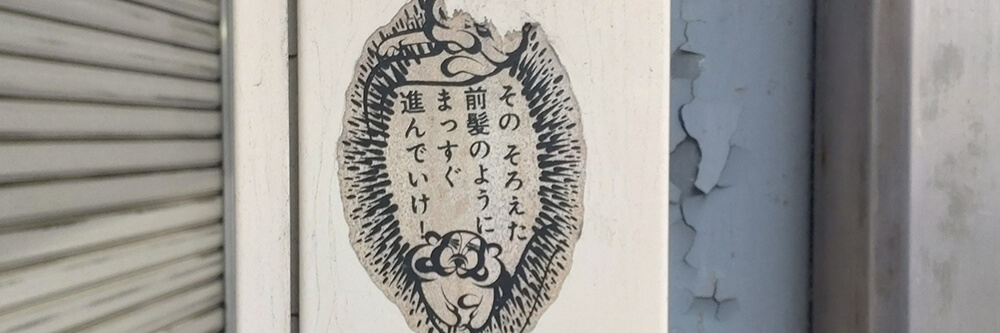 その そろえた
前髪のように
まっすぐ
進んでいけ!